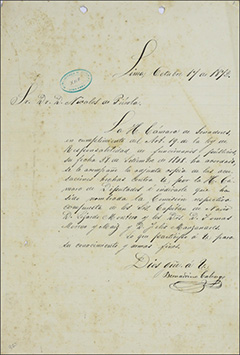 Lima, Octubre 17 de 1872.
Sr. D. D. Nicolas de Piérola.
La H. Cámara de Senadores,
en cumplimiento del Art. 19 de la ley de
Responsabilidad de funcionarios públicos
su fecha 28 de Setiembre de 1868 ha acordado
se le acompañe la adjunta copia de las
acusaciones hechas contra U. por la H. Cá-
mara de Diputados é indicarle que ha
sido nombrada la Comision respectiva
compuesta de los Sres. Capitan de Navio
D. Lizardo Montero y los Drs. D. Tomas
y D. Felix Manzanares
lo que participo á U. para
su conocimiento y demas fines.
Dios gûe. á U.